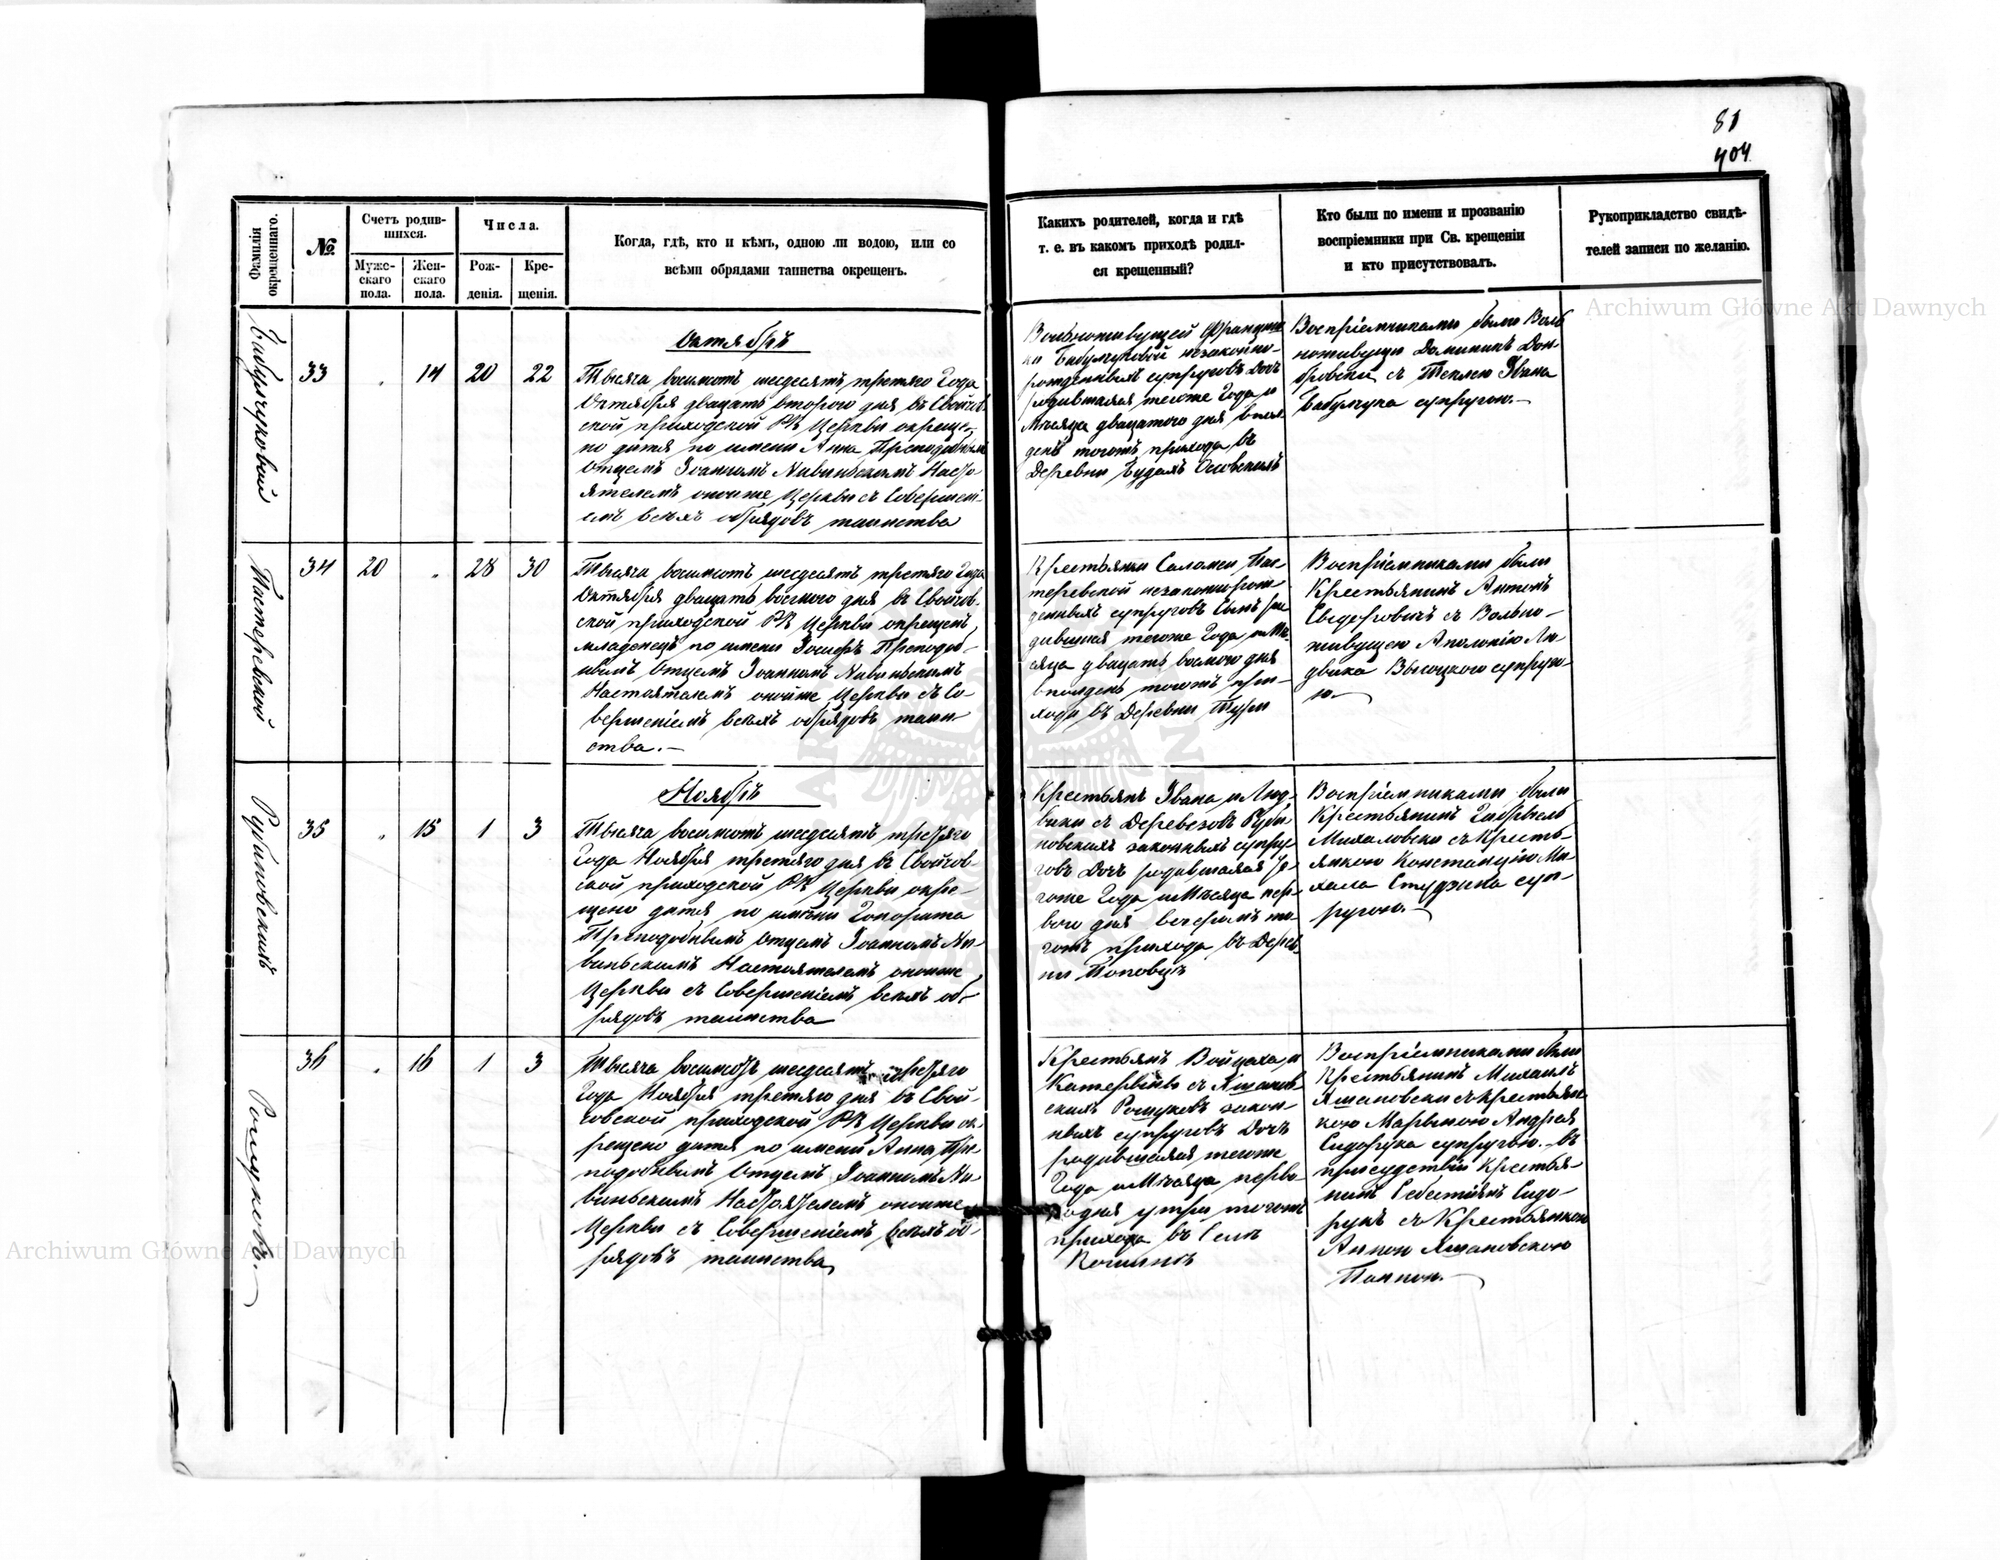 81
404
Фамилія окрещеннаго.
№
Счетъ родив-
шихся.
Муже-
скаго
пола.
Жен-
скаго
пола.
Числа.
Рож-
денія.
Кре-
щенія.
Когда, гдѣ, кто и кѣмъ, одною ли водою, или со
всѣми обрядами таинства окрещенъ.
Какихъ родителей, когда и гдѣ
т. е. въ какомъ приходѣ родил-
ся крещенный?
Кто были по имени и прозванію
воспріемники при Св. крещеніи
и кто присутствовалъ.
Рукоприкладство свидѣ-
телей записи по желанію.
33
„
14
20
22
Октябрь
Тысяча восимсотъ шесдесятъ третяго Года
Октября двацать второго дня въ Свойчов
ской приходской РК Церкви окреще-
но дитя по имени Анна Преподобнымъ
Отцемъ Іоанномъ Настоятелемъ
ятелемъ оноиже Церкви съ Совершені-
емъ всѣхъ обрядовъ таинства
рожденныхъ супруговъ Дочь
родившаяся тогоже Года и
Мѣсяца двацатого дня
день тогожъ прихода въ
Деревни Будахъ Осовскихъ
Воспріемниками были Воль
ножившущи Доминикъ Дом
бровски съ Теклею Ивана
Бабулчука супругою.—
Пастеревской
34
20
„
28
30
Тысяча восимсотъ шесдесятъ третяго Года
Октября двацать восмого дня въ Свойчов-
ской приходской РК Церкви окрещенъ
младенецъ по имени Іосифъ Преподоб-
нымъ Отцемъ Іоанномъ
Настоятелемъ оноиже Церкви съ Со-
вершеніемъ всѣхъ обрядовъ таин-
ства.—
Крестьянки Саломеи Пас-
теревской незаконорож-
денныхъ супруговъ Сынъ ро
дившійся тогоже Года и Мѣ-
сяца двацать восмого дня
вполдень тогожъ при-
хода въ Деревни Тури
Воспріемниками были
Крестьянинъ Антонъ
Сыдоровичъ съ Вольно-
живущею Аполонію Лю
двика Высоцкого супруго
ю.—
Рубановскихъ
35
„
15
1
3
Ноябрь
Тысяча восимсотъ шесдесятъ третяго
Года Ноября третяго дня въ Свойчов
ской приходской РК Церкви окре-
щено дитя по имѣни Гонората
Преподобнымъ Отцемъ Іоанномъ
Настоятелемъ оноиже
Церкви съ Совершеніемъ всѣхъ об-
рядовъ таинства
Крестьянъ Ивана и Люд-
вики съ Руба
новскихъ законныхъ супру
говъ Дочь родившаяся то-
гоже Года и Мѣсяца пер-
вого дня вечеромъ то-
гожъ прихода въ Дерев
ни Поповцъ
Воспріемниками были
Крестьянинъ Габрыель
Михаловски съ Кресть-
янкою Констанцію Ми-
хала суп-
ругою.—
36
„
16
1
3
Тысяча восимсотъ шесдесятъ третяго
Года Ноября третяго дня въ Свой-
човской приходской РК Церкви ок-
рещено дитя по имени Анна Пре-
подобнымъ Отцемъ Іоанномъ
Настоятелемъ оноиже
Церкви съ Совершеніемъ всѣхъ об-
рядовъ таинства
Крестьянъ Войцеха и
ныхъ супруговъ Дочь
родившаяся тогоже
Года и Мѣсяца перво-
го дня утра тогожъ
прихода въ Селѣ
Воспріемниками были
Крестьянинъ Михаилъ
съ крестьян
кою Марыною Андрея
Сидорука супругою.— въ
присудствіи Крестья-
нинъ Себестіянъ Сидо-
рукъ съ Крестьянкою
Анною
Панною.—
Archiwum Główne Akt Dawnych
Archiwum Główne Akt Dawnych